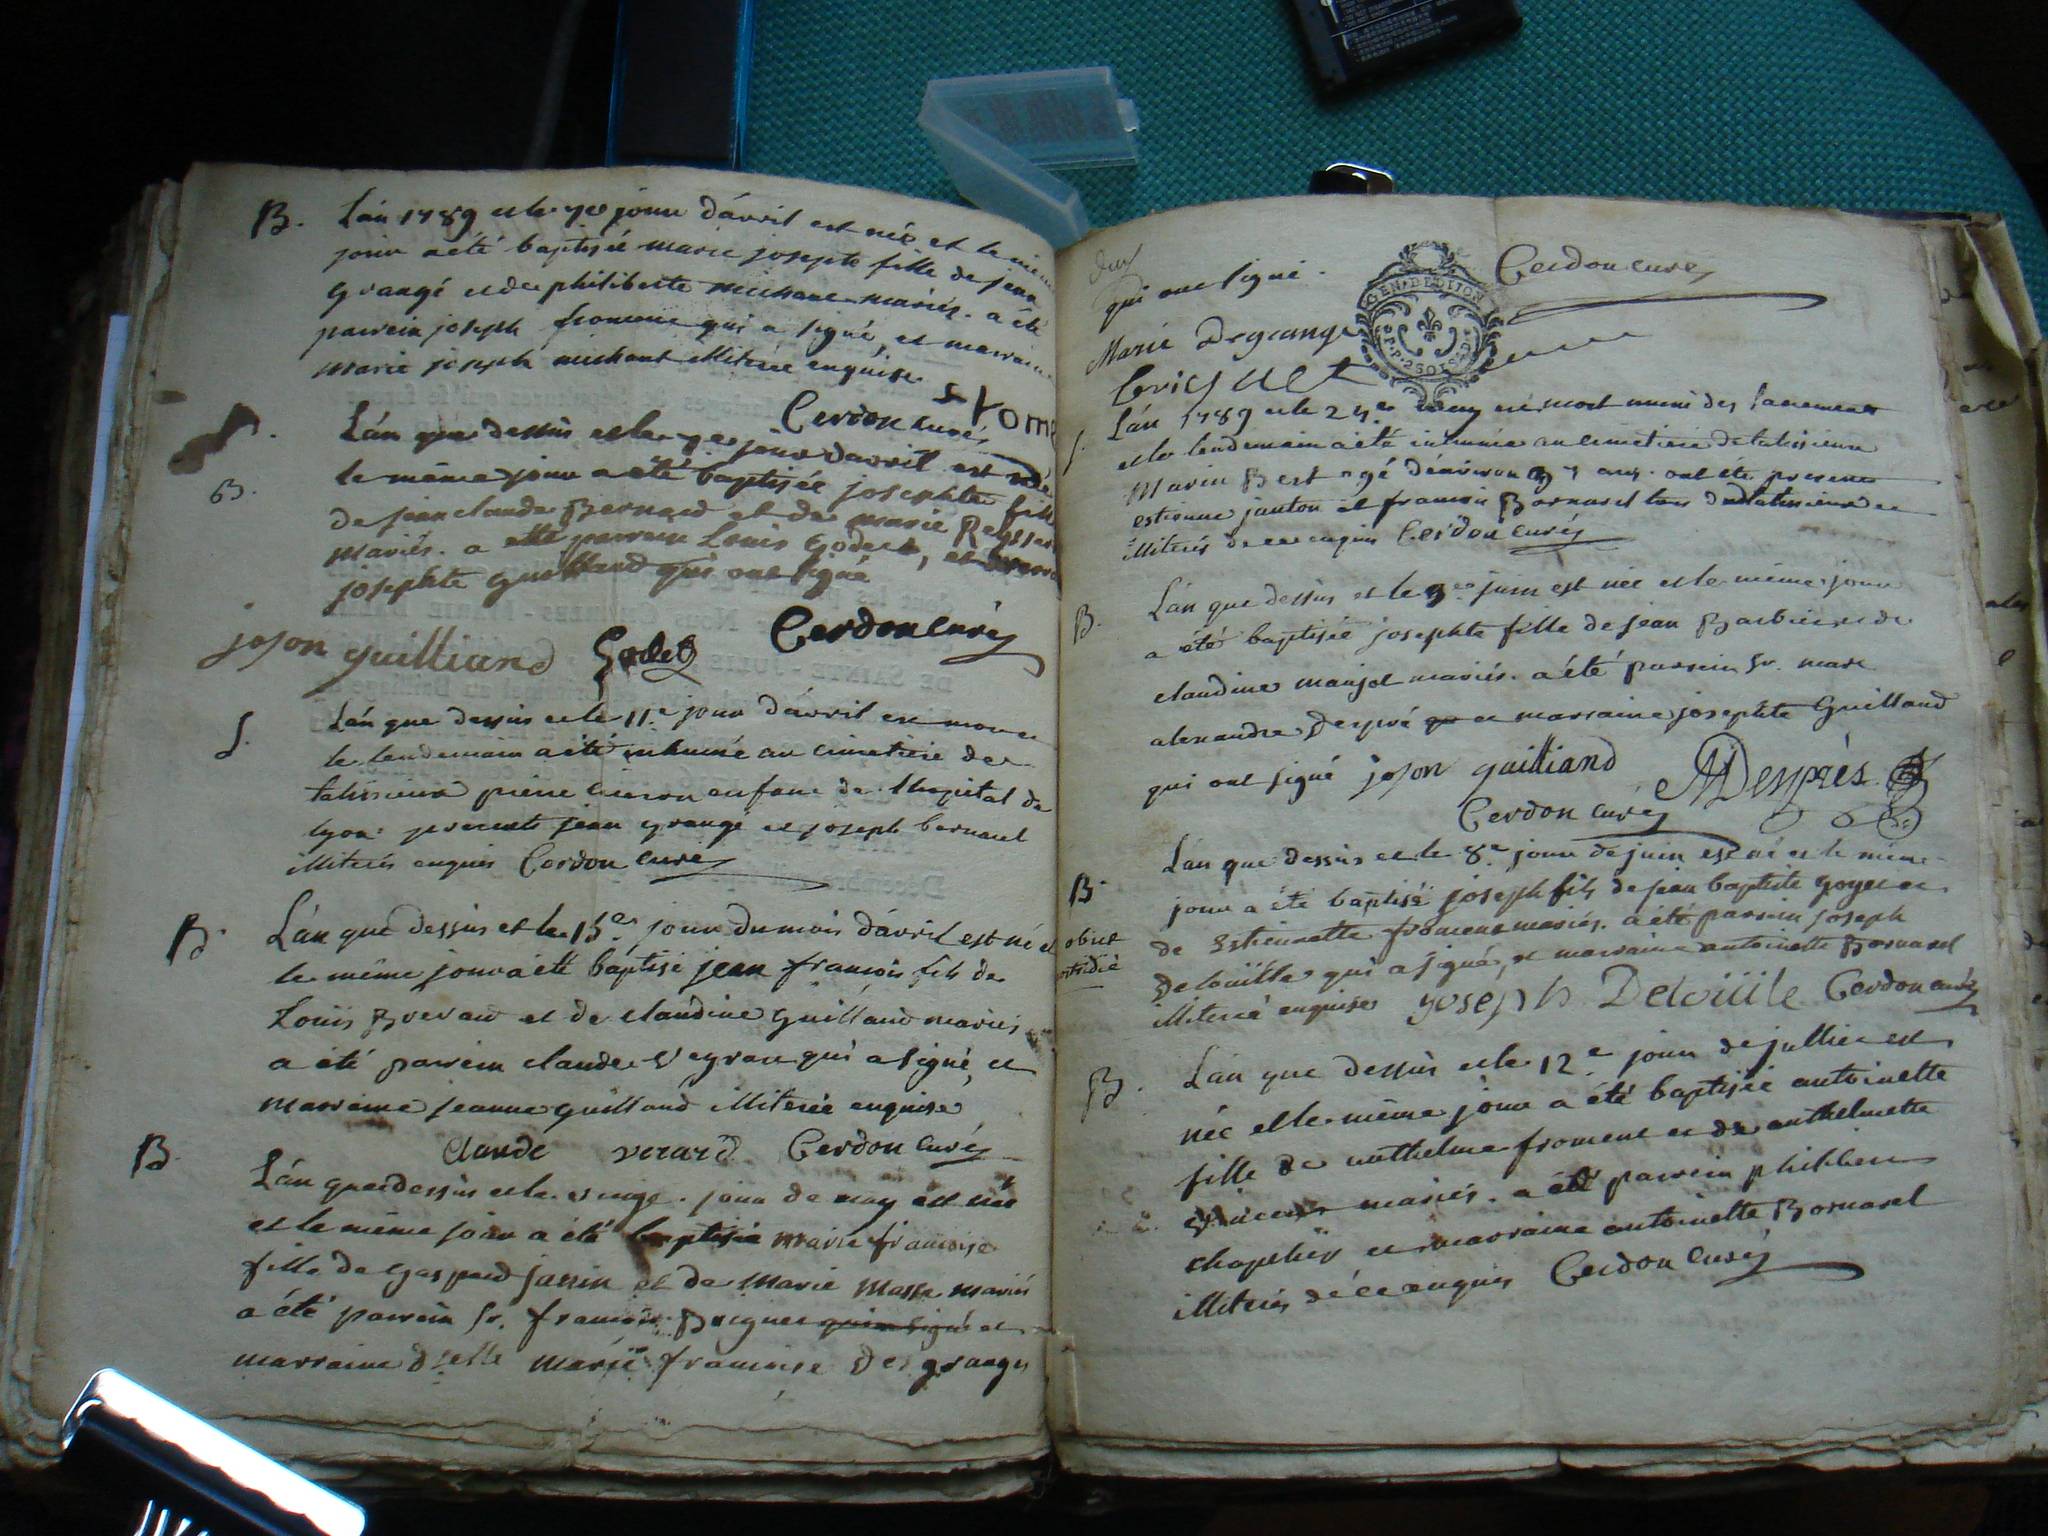 B. L'an 1789 et le 7e jour d'avril est née et le même
jour a été baptisée marie josephte fille de jean
grangé et de philiberte michant mariés. a été
parrein joseph froment qui a signé, et marraine
marie joseph michant illiterée enquise
Cerdon curé
L'an que dessus et le 9e jour d'avril est née
B. le même jour a été baptisée josephte fille
de jean claude Bernard et de marie
mariés. a été parrein Louis Godet, et
josephte Guilland qui ont signé
joson guilliand Godet Cerdon Curé
S. L'an que dessus et le 11e jour d'avril est mort et
le lendemain a été inhumé au cimetiere de
talissieux pierre enfant de l'hopital de
Lyon presents jean grangé et joseph bernard
illiterés enquis Cerdon Curé
B. L'an que dessus et le 15e jour du mois d'avril est né et
le même jour a été baptisé jean francois fils de
Louis et de claudine Guilland mariés
a été parrein claude qui a signé, et
marraine jeanne guilland illiterée enquise
claude verard Cerdon Curé
B. L'an que dessus et le jour de may est née
et le même jour a été baptisée marie francoise
fille de Gaspard janin et de Marie Masse mariés
a été parrein Sr. francois qui a signé et
marraine dselle marie francoise Des granges
qui ont signé. Cerdon curé
GEN. DE DIJON
Marie Degrange
L'an 1789 et le may est mort muni des Sacrements
S. et le lendemain a été inhumé au cimetiere de talissieux
Marin agé d'environ ans. ont été presents
estienne janton et francois Bornarel tous de talissieux
illiterés de ce enquis Cerdon Curé
B. L'an que dessus et le 3e juin est née et le même jour
a été baptisée josephte fille de jean Barbier et de
claudine manjot mariés. a été parrein Sr. marc
alexandre Despré et marraine josephte Guilland
qui ont signé joson guilliand Després
Cerdon Curé
L'an que dessus et le 8e jour de juin est né et le même
B. jour a été baptisé joseph fils de jean baptiste goyet et
obiit de Estiennette froment mariés. a été parrein joseph
Delouille qui a signé, et marraine antoinette Bornarel
illiterée enquise joseph Deloüille Cerdon curé
B. L'an que dessus et le 12e jour de juillet est
née et le même jour a été baptisée antoinette
fille de anthelme froment et de anthelmette
mariés. a été parrein philibert
chapelier et marraine antoinette Bornarel
illiterés de ce enquis Cerdon Curé